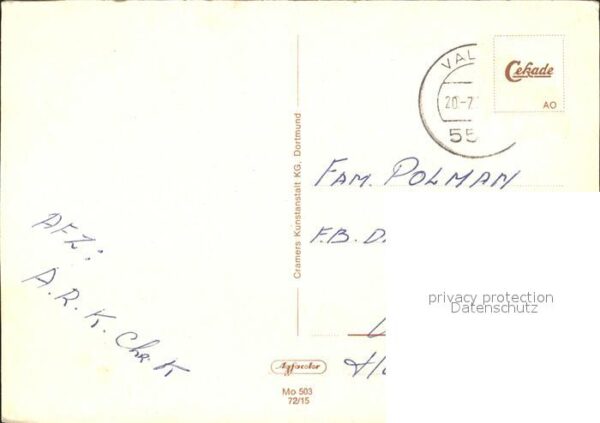 VAL
20-7
55
Cekade
AO
Cramers Kunstanstalt KG, Dortmund
FAM. POLMAN
F.B. D.
AFZ:
A.R.K. Chr. K
privacy protection
Datenschutz
Agfacolor
Mo 503
72/15